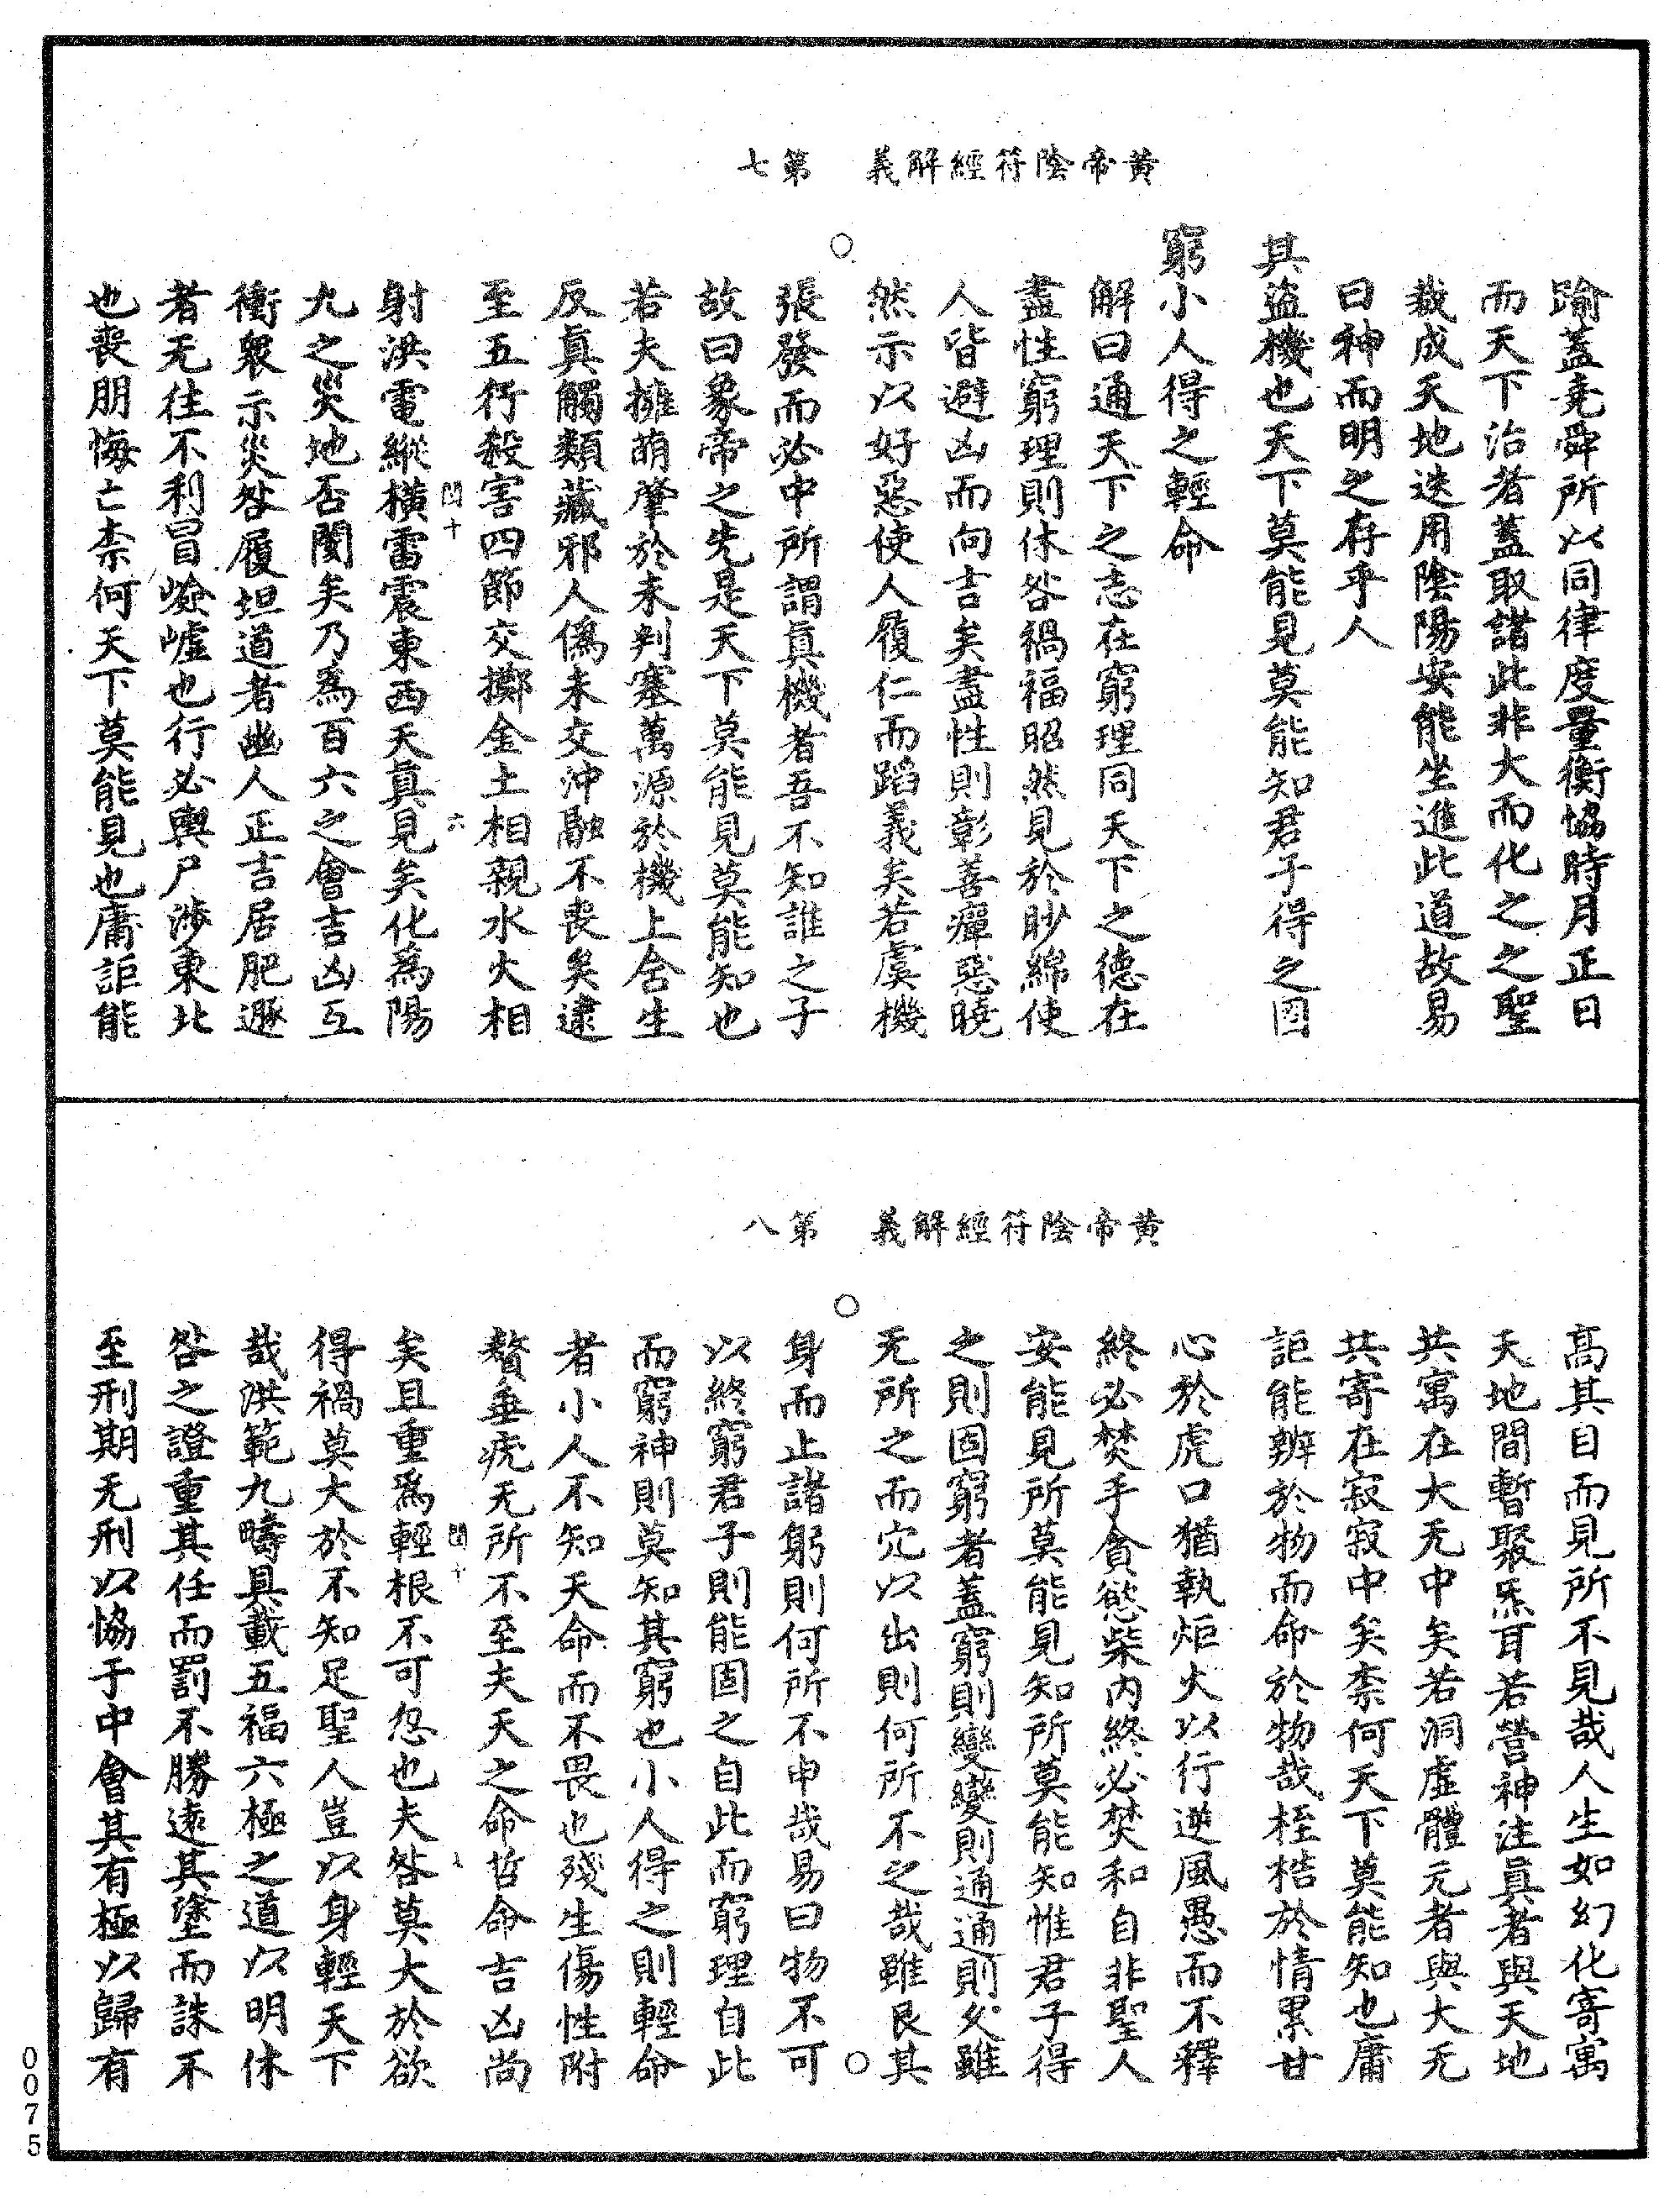 黃帝陰符經解義　第七
踰蓋堯舜所以同律度量衡協時月正日
而天下治者蓋取諸此非大而化之之聖
裁成天地迭用陰陽安能坐進此道故易
曰神而明之存乎人
其盜機也天下莫能見莫能知君子得之固
窮小人得之輕命
解曰通天下之志在窮理同天下之德在
盡性窮理則休咎禍福昭然見於眇綿使
人皆避凶而向吉矣盡性則彰善癉惡曉
然示以好惡使人履仁而蹈義矣若虞機
張發而必中所謂真機者吾不知誰之子
故曰象帝之先是天下莫能見莫能知也
若夫擁萌肇於未判塞萬源於機上舍生
反真觸類藏邪人偽未交沖融不喪矣逮
至五行殺害四節交擲金土相親水火相
射洪電縱橫雷震東西天真見矣化為陽
九之災地否閡矣乃為百六之會吉凶互
衝眾示災咎履坦道者幽人正吉居肥遯
者无往不利冒嶮巇也行必輿尸涉東北
也喪朋悔亡柰何天下莫能見也庸詎能
閏十
六
黃帝陰符經解義　第八
高其目而見所不見哉人生如幻化寄寓
天地間暫聚炁耳若營神注真者與天地
共寓在大无中矣若洞虛體元者與大无
共寄在寂寂中矣柰何天下莫能知也庸
詎能辨於物而命於物哉桎梏於情累甘
心於虎口猶執炬火以行逆風愚而不釋
終必焚手貪慾柴內終必焚和自非聖人
安能見所莫能見知所莫能知惟君子得
之則固窮者蓋窮則變變則通通則久雖
无所之而穴以出則何所不之哉雖艮其
身而止諸躬則何所不申哉易曰物不可
以終窮君子則能固之自此而窮理自此
而窮神則莫知其窮也小人得之則輕命
者小人不知天命而不畏也殘生傷性附
贅垂疣无所不至夫天之命哲命吉凶尚
矣且重為輕根不可忽也夫咎莫大於欲
得禍莫大於不知足聖人豈以身輕天下
哉洪範九疇具載五福六極之道以明休
咎之證重其任而罰不勝遠其塗而誅不
至刑期无刑以協于中會其有極以歸有
閏十
0075